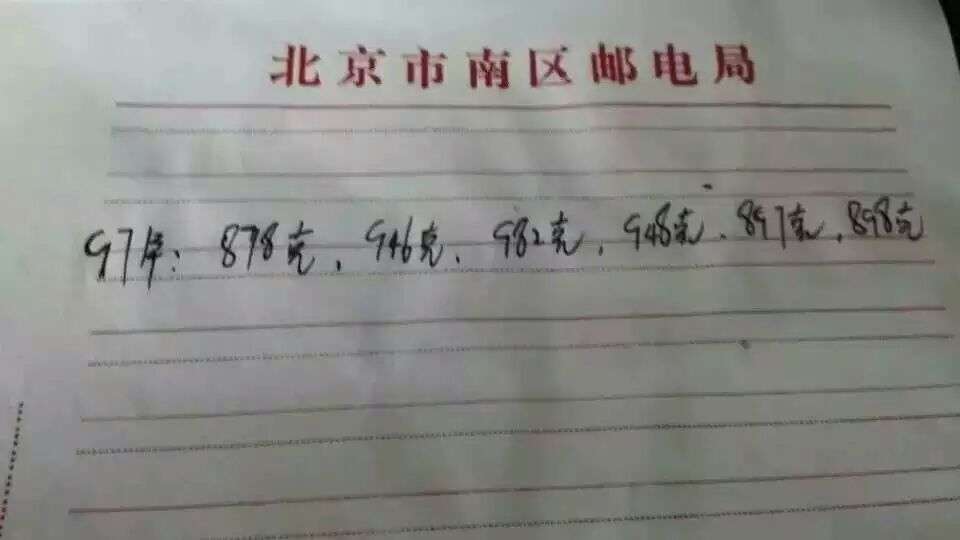 北京市南区邮电局
97年：878克、946克、982克、948克、897克、898克